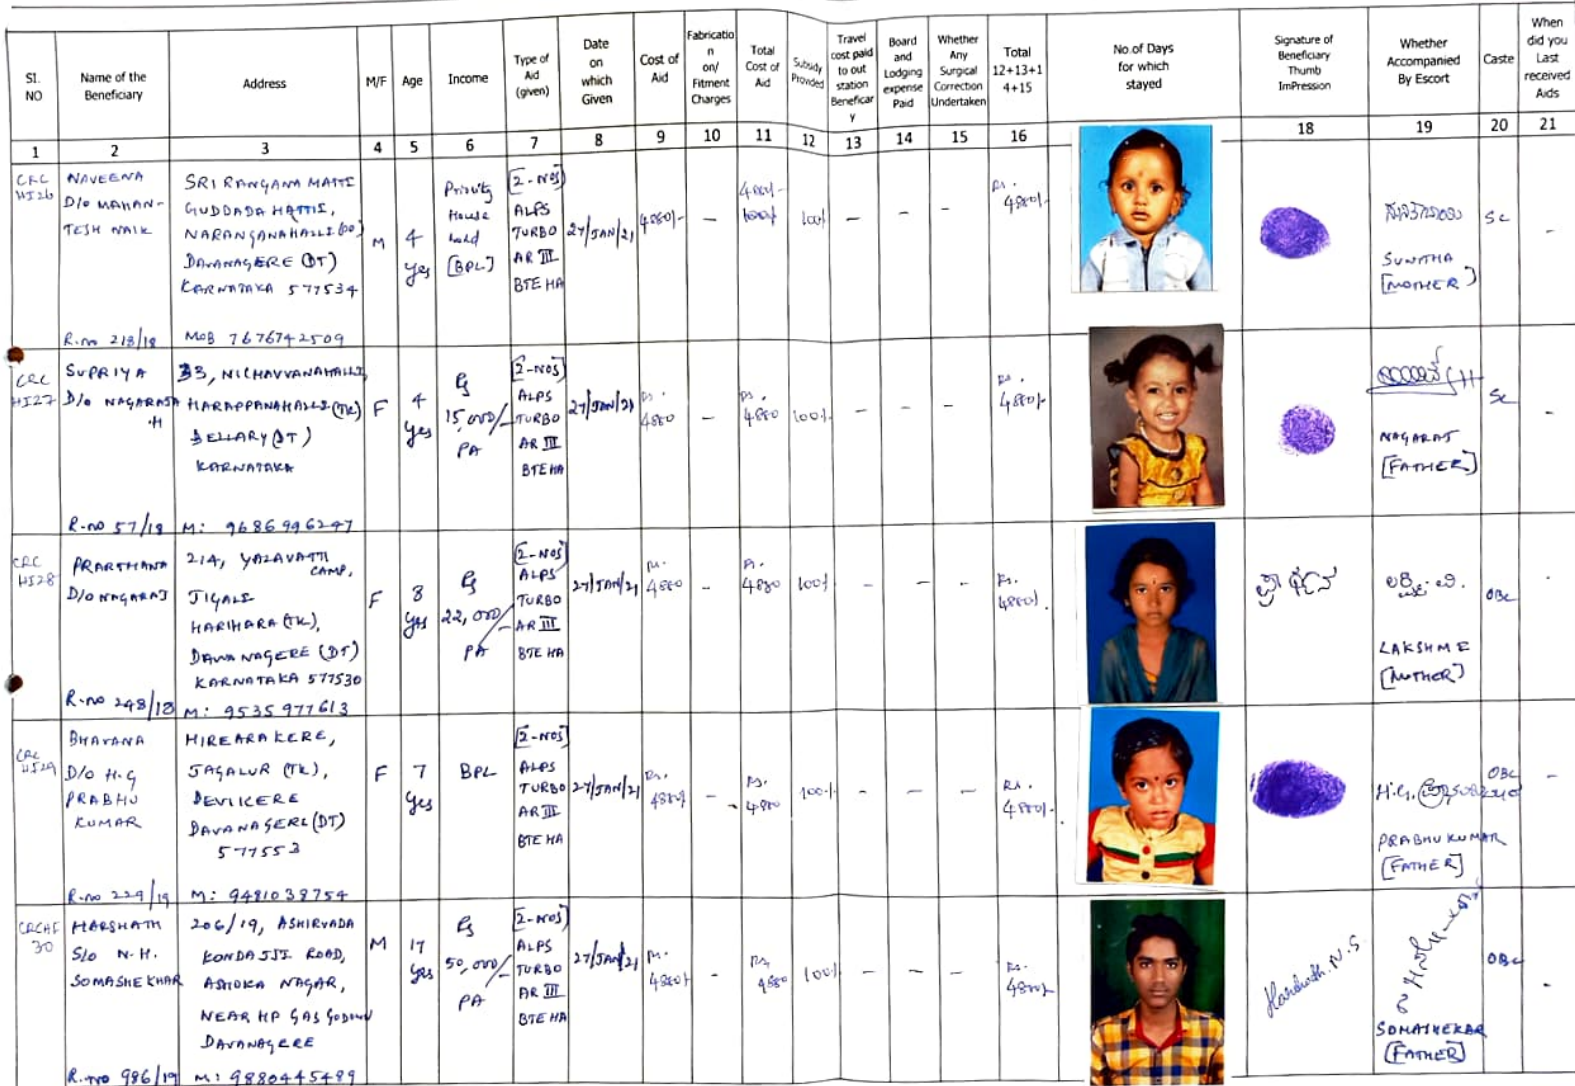 Sl. NO
Name of the Beneficiary
Address
M/F
Age
Income
Type of Aid (given)
Date on which Given
Cost of Aid
Fabricatio n on/ Fitment Charges
Total Cost of Aid
Subsidy Provided
Travel cost paid to out station Beneficar y
Board and Lodging expense Paid
Whether Any Surgical Correction Undertaken
Total 12+13+1 4+15
No.of Days for which stayed
Signature of Beneficiary Thumb ImPression
Whether Accompanied By Escort
Caste
When did you Last received Aids
1 2 3 4 5 6 7 8 9 10 11 12 13 14 15 16 18 19 20 21
CRC HI26
NAVEENA
D/o MAHAN-
TESH NAIK
R.no 218/18
SRI RANGANA MATTI
GUDDADA HATTI,
NARANGANAHALLI (PO)
DAVANAGERE (DT)
KARNATAKA 577534
MOB 7676742509
M
4 yrs
House hold [BPL]
[2-NOS]
ALPS
TURBO
AR III
BTE HA
27/JAN/21
4880/-
–
4880/-
100%
100%
–
–
–
Rs. 4880/-
SUNITHA
[MOTHER]
SC
–
CRC HI27
SUPRIYA
D/o NAGARAJA
.H
R-no 57/18
33, NICHAVVANAHALLI,
HARAPPANAHALLI (TK)
BELLARY (DT)
KARNATAKA
M: 9686996247
F
4 yrs
Rs 15,000/- PA
[2-NOS]
ALPS
TURBO
AR III
BTE HA
27/JAN/21
Rs. 4880
–
Rs. 4880
100%
–
–
–
Rs. 4880/-
NAGARAJ
[FATHER]
SC
–
CRC HI28
PRARTHANA
D/O NAGARAJ
R-no 248/18
214, YALAVATTI
CAMP,
JIGALI
HARIHARA (TK),
DAVANAGERE (DT)
KARNATAKA 577530
M: 9535977613
F
8 yrs
Rs 22,000/- PA
[2-NOS]
ALPS
TURBO
AR III
BTE HA
27/JAN/21
Rs. 4880
–
Rs. 4880
100%
–
–
–
Rs. 4880/-
ಪ್ರಾರ್ಥನ
ಲಕ್ಷ್ಮಿ. ಬಿ.
LAKSHME
[MOTHER]
OBC
-
CRC HI29
BHAVANA
D/o H.G
PRABHU
KUMAR
R-no 229/19
HIREARAKERE,
JAGALUR (TK),
DEVIKERE
DAVANAGERE (DT)
577553
M: 9481038754
F
7 yrs
BPL
[2-NOS]
ALPS
TURBO
AR III
BTE HA
27/JAN/21
Rs. 4880/-
–
Rs. 4880
100%
–
–
–
Rs. 4880/-
PRABHU KUMAR
[FATHER]
OBC
–
CRCHI 30
HARSHATH
S/o N.H.
SOMASHEKHAR
R.no 986/19
206/19, ASHIRVADA
KONDAJJI ROAD,
ASHOKA NAGAR,
NEAR HP GAS GODOWN
DAVANAGERE
M: 9880445489
M
17 yrs
Rs 50,000/- PA
[2-NOS]
ALPS
TURBO
AR III
BTE HA
27/JAN/21
Rs. 4880/-
–
Rs. 4880
100%
–
–
–
Rs. 4880/-
Harshath. N.S.
SOMASHEKAR
[FATHER]
OBC
-